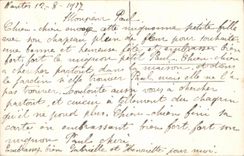 Nantes 12-8-1917
Monsieur Paul.
Chien chéri envoye elle mignonne petite fille
avec son chapeau plein de fleur pour souhaite
une bonne et heureuse fête et embrasse bien
fort, fort le mignon petit Paul. Chien chéri
a cherché partout dans la maison et dans
le jardin elle trouve Paul mais elle ne l'a
pas trouver. Doudoute aussi vous a cherché
partout, et cueur à tellement du chagrin
qu'il ne peut plus. Chien chéri fini sa
carte en embrassant bien fort, fort son
mignonne Paul chéri
Embrasse bien Gabrielle et Henriette pour moi.